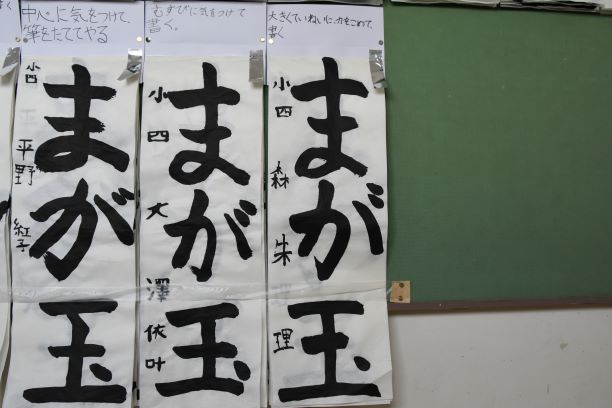 中心に気をつけて、
筆をたててやる
小四 平野 紅子
まが玉
むすびに気をつけて
書く。
小四 大澤 依叶
まが玉
大きくていねいに、力をこめて、
書く
小四 森 朱理
まが玉